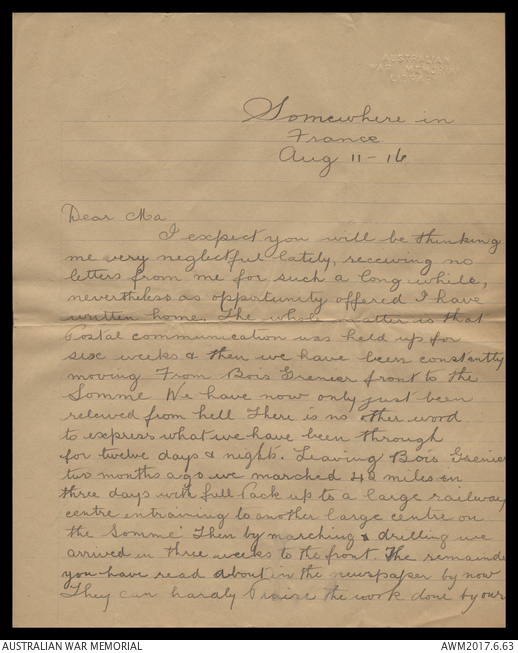 AUSTRALIAN
WAR MEMORIAL
LIBRARY
Somewhere in
France.
Aug 11-16
Dear Ma
I expect you will be thinking
me very neglectful lately, receiving no
letters from me for such a long while,
nevertheless as opportunity offered I have
written home. The whole matter is that
Postal communication was held up for
six weeks & then we have been constantly
moving From Bois Grenier front to the
Somme We have now only just been
releived from hell There is no other word
to express what we have been through
for twelve days & nights. Leaving Bois Grenier
two months ago we marched 42 miles in
three days with full Pack up to a large railway
centre entraining to another large centre on
the Somme. Then by marching & drilling we
arrived in three weeks to the front. The remainder
you have read about in the newspaper by now
They can hardly praise the work done by our
AUSTRALIAN WAR MEMORIAL
AWM2017.6.63